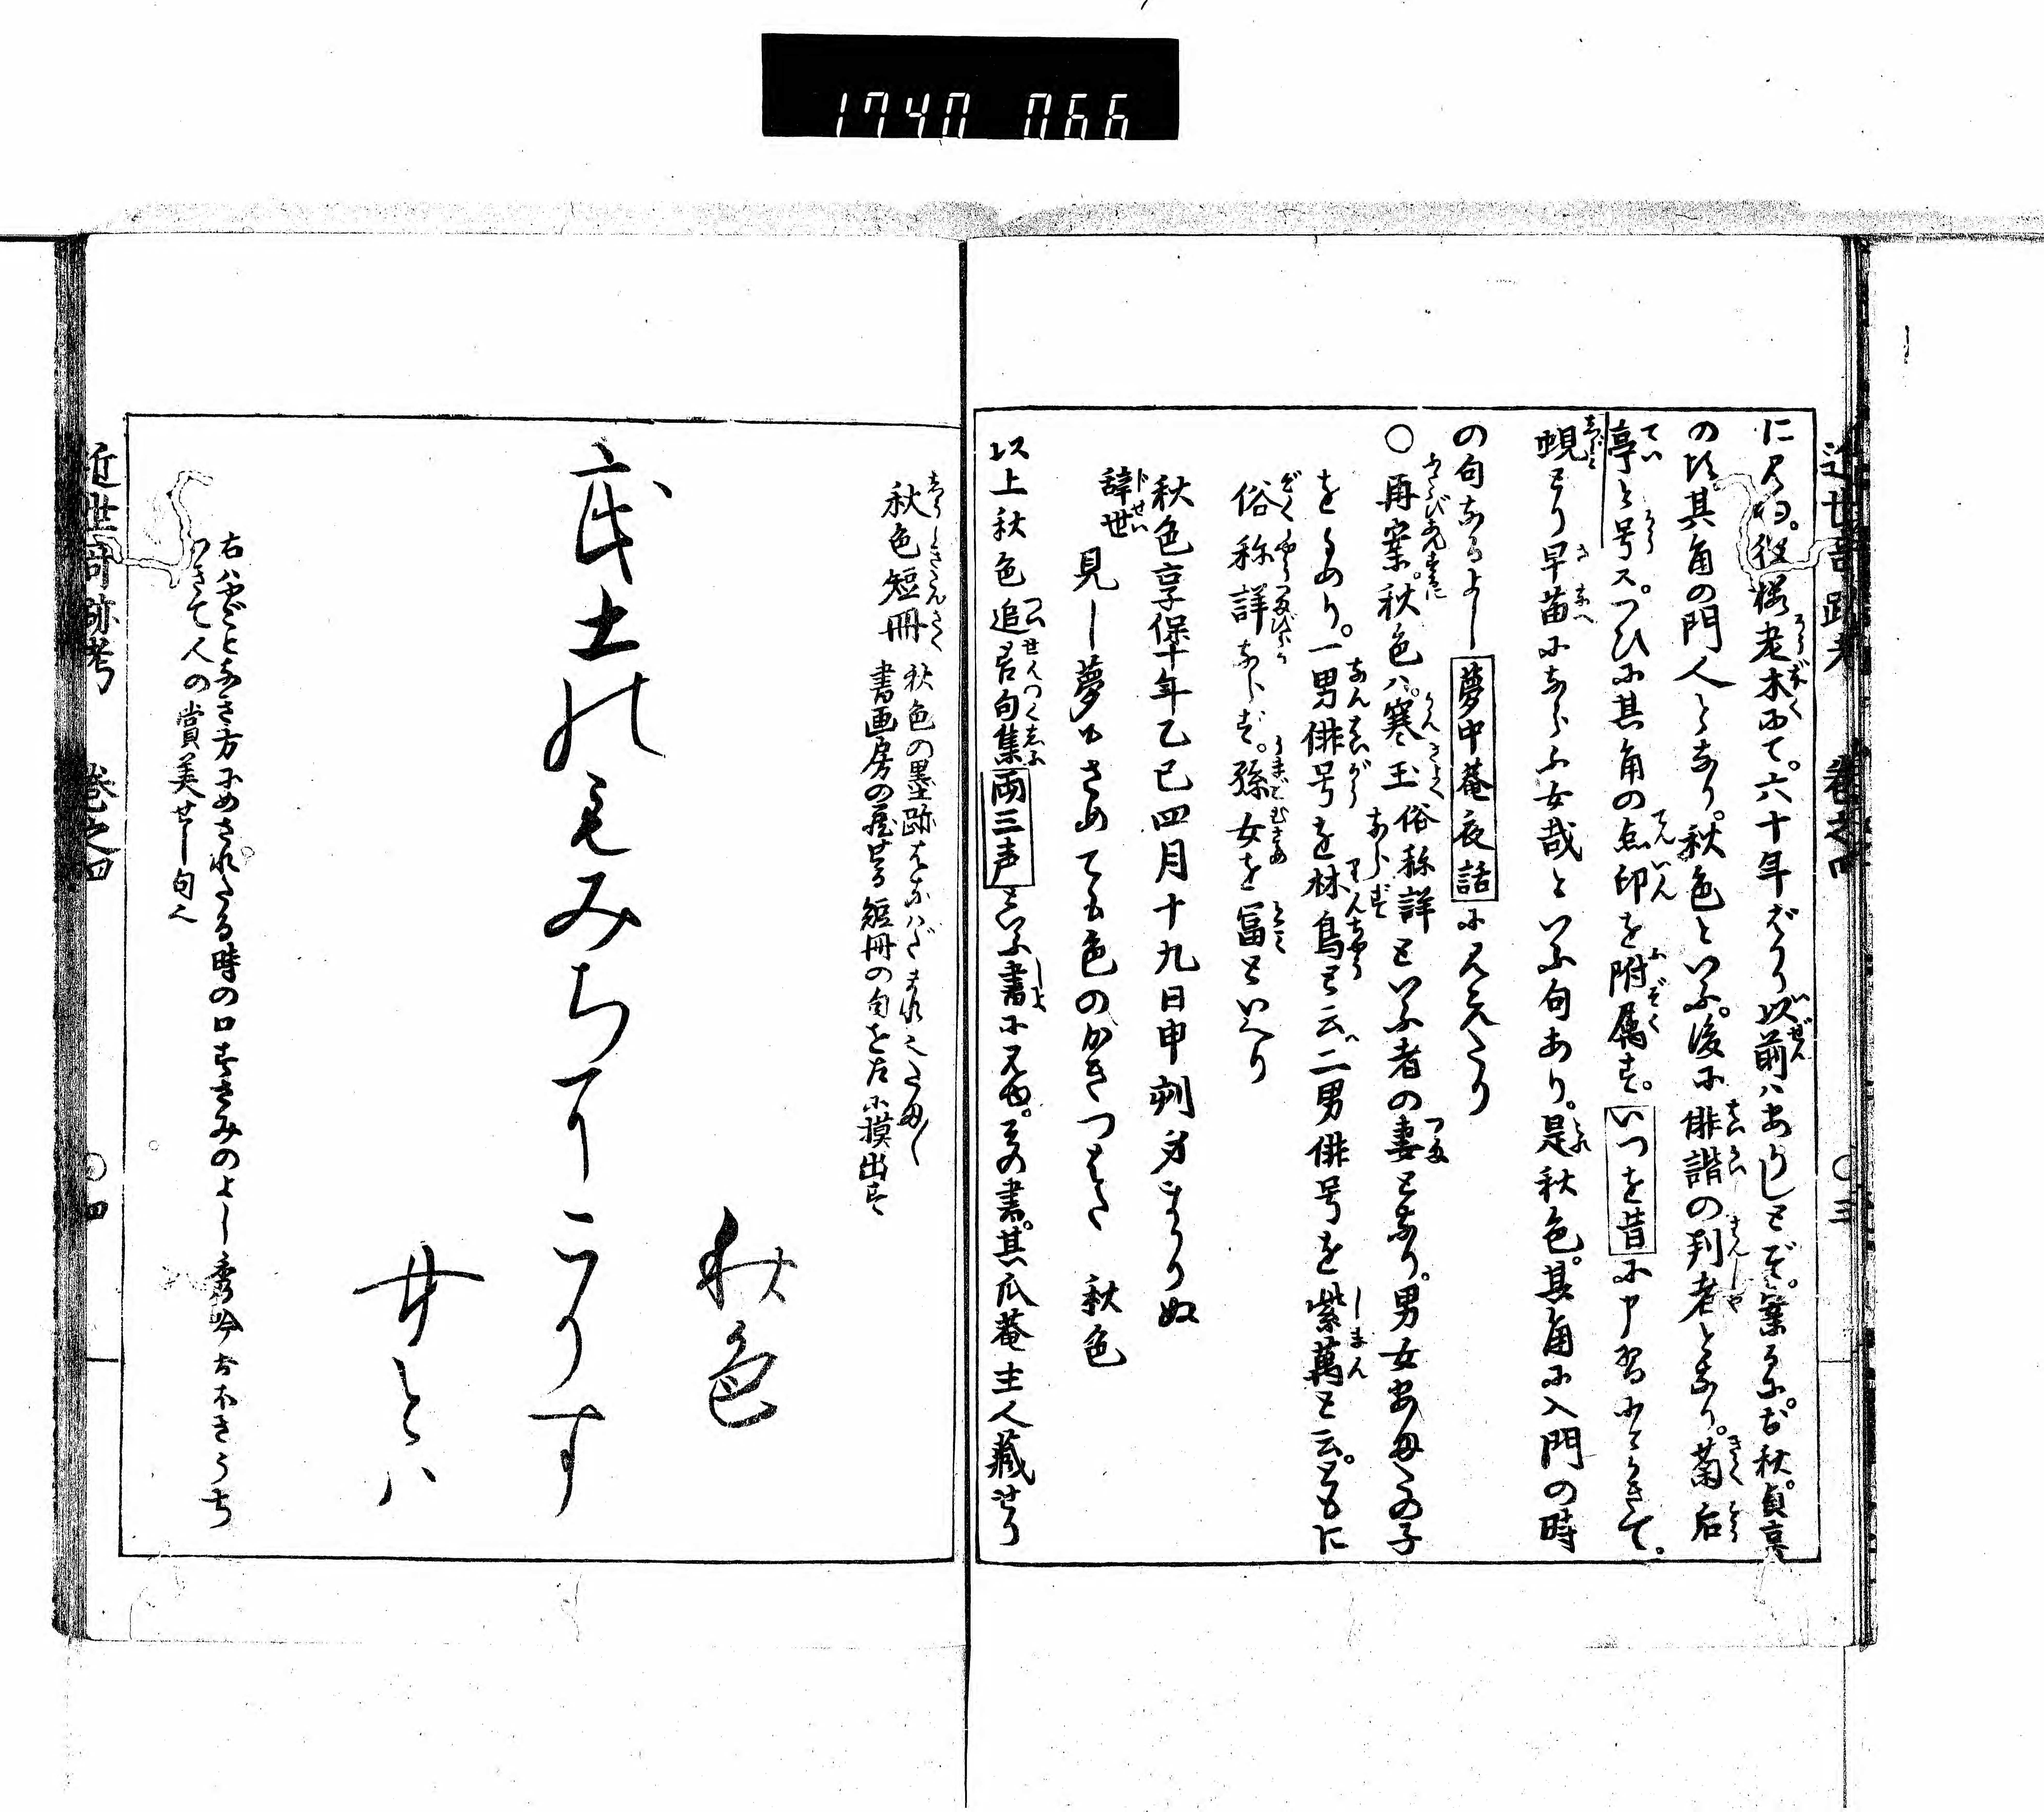 1740 066
近世奇跡考 巻之四 〇三
に見ゆ。彼桜老木にて。六十年ばかり以前はありしとぞ。案るに。お秋。貞享
の頃其角の門人となり。秋色といふ。後に俳諧の判者となり。菊后
亭と号ス。つひに其角の点印を附属す。いつを昔に
蜆とり早苗にならふ女哉といふ句あり。是秋色。其角に入門の時
の句なるよし夢中菴夜話に見えたり
〇再案。秋色ハ。寒玉俗称詳ならずといふ者の妻となり。男女あまたの子
をうめり。一男俳号を林鳥と云。二男俳号を紫萬と云。ともに
俗称詳ならず。孫女を冨といへり
秋色享保十年乙巳四月十九日申刻身まかりぬ
辞世 見し夢のさめても色のかきつばた 秋色
以上秋色追善句集両三声といふ書に見ゆ。その書。其瓜菴主人蔵せり
秋色短冊 秋色の墨跡はなはだまれ也
書画房の蔵せる短冊の句を左に摸出す
秋色
武士の
もみちに
こりす
女とハ
右ハやごとなき方にめされたる時の口ずさみのよし秀吟おほきうち
人の賞美せし句也
近世奇跡考 巻之四 〇四